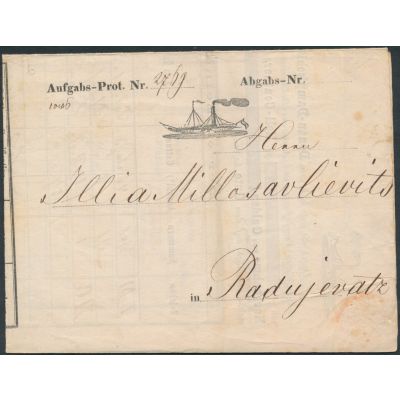 Aufgabs-Prot. Nr. 2769 Abgabs-Nr.
Herrn
Illia Millosavlievits
in Radujevatz